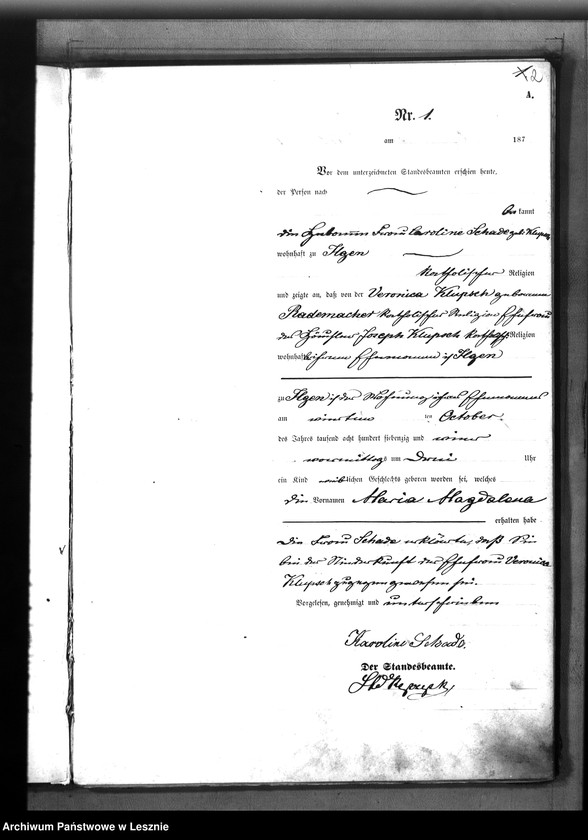 2
A.
Nr. 1.
am 187
Vor dem unterzeichneten Standesbeamten erschien heute,
der Person nach
be kannt
die Hebamme Frau Caroline Schade geb. Klupsch
wohnhaft zu Ilgen
katholischer Religion
und zeigte an, daß von der Veronica Klupsch geborenen
Rademacher katholischer Religion Ehefrau
des Häusler Joseph Klupsch kathol. Religion
wohnhaft bei ihrem Ehemanne in Ilgen
zu Ilgen in der Wohnung ihres Ehemannes
am vierten ten October
des Jahres tausend acht hundert siebenzig und
vormittags um Drei Uhr
ein Kind weiblichen Geschlechts geboren worden sei, welches
die Vornamen Maria Magdalena
erhalten habe
Die Frau Schade erklärte, daß Sie
bei der Niederkunft der Ehefrau Veronica
Klupsch zugegen gewesen sei.
Vorgelesen, genehmigt und unterschrieben
Karoline Schade.
Der Standesbeamte.
Archiwum Państwowe w Lesznie